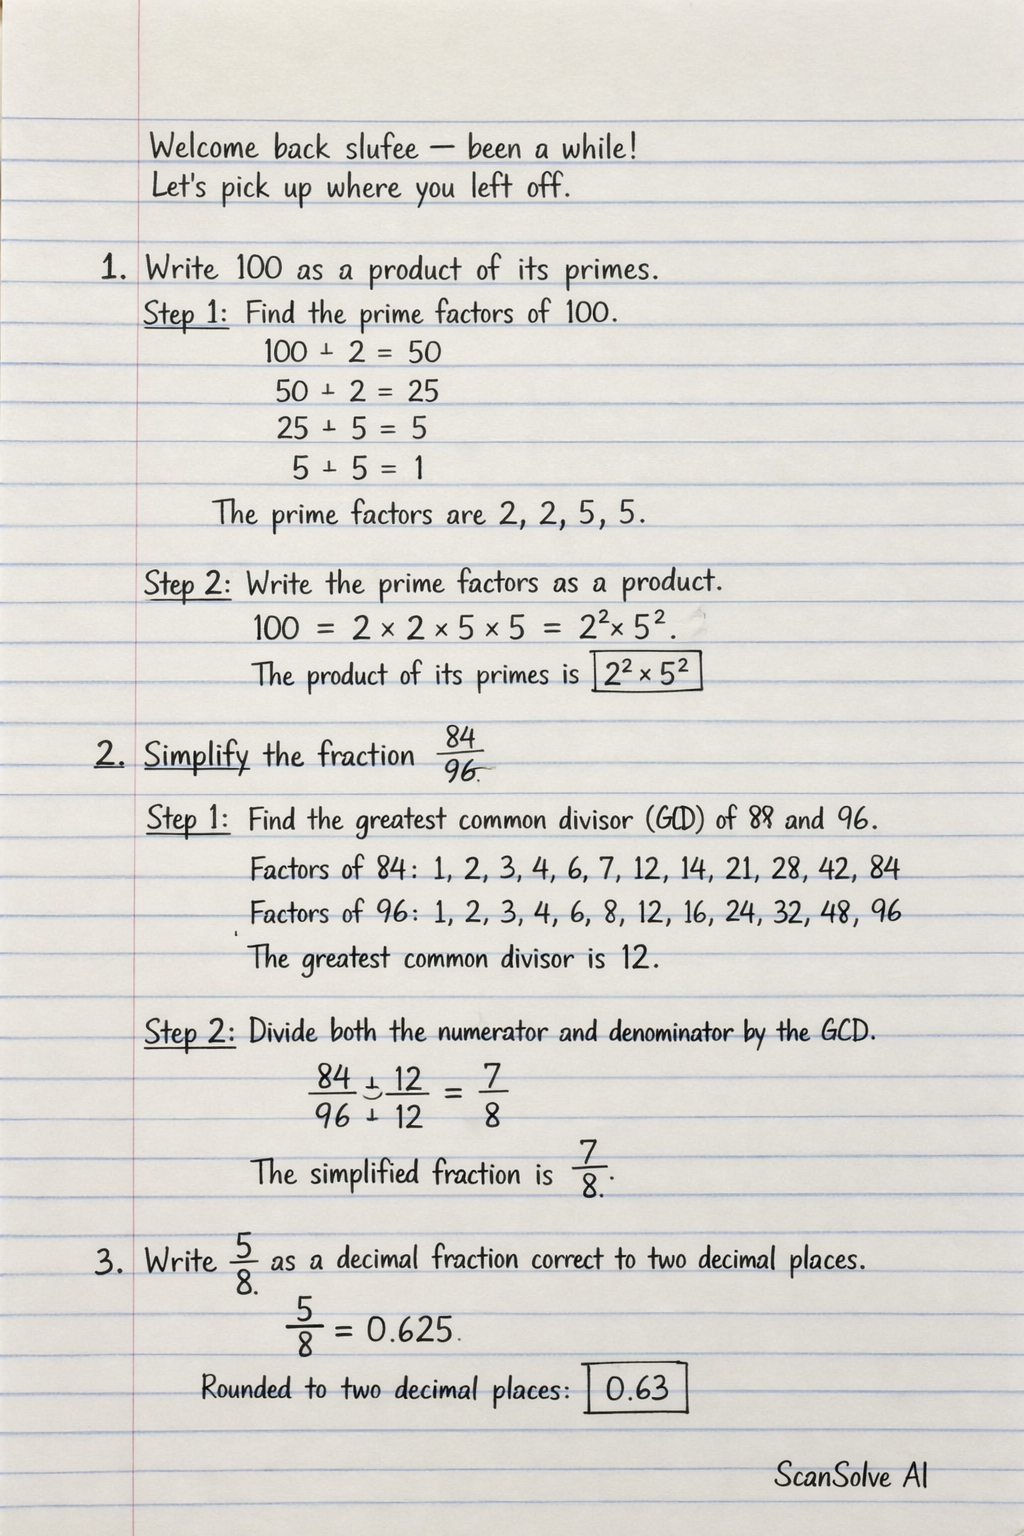 Welcome back slufee — been a while!
Let's pick up where you left off.
1. Write 100 as a product of its primes.
Step 1: Find the prime factors of 100.
100 ÷ 2 = 50
50 ÷ 2 = 25
25 ÷ 5 = 5
5 ÷ 5 = 1
The prime factors are 2, 2, 5, 5.
Step 2: Write the prime factors as a product.
100 = 2 × 2 × 5 × 5 = 2² × 5².
The product of its primes is 2² × 5²
2. Simplify the fraction 84/96.
Step 1: Find the greatest common divisor (GCD) of 88 and 96.
Factors of 84: 1, 2, 3, 4, 6, 7, 12, 14, 21, 28, 42, 84
Factors of 96: 1, 2, 3, 4, 6, 8, 12, 16, 24, 32, 48, 96
The greatest common divisor is 12.
Step 2: Divide both the numerator and denominator by the GCD.
84/96 ÷ 12/12 = 7/8
The simplified fraction is 7/8.
3. Write 5/8. as a decimal fraction correct to two decimal places.
5/8 = 0.625.
Rounded to two decimal places: 0.63
ScanSolve AI